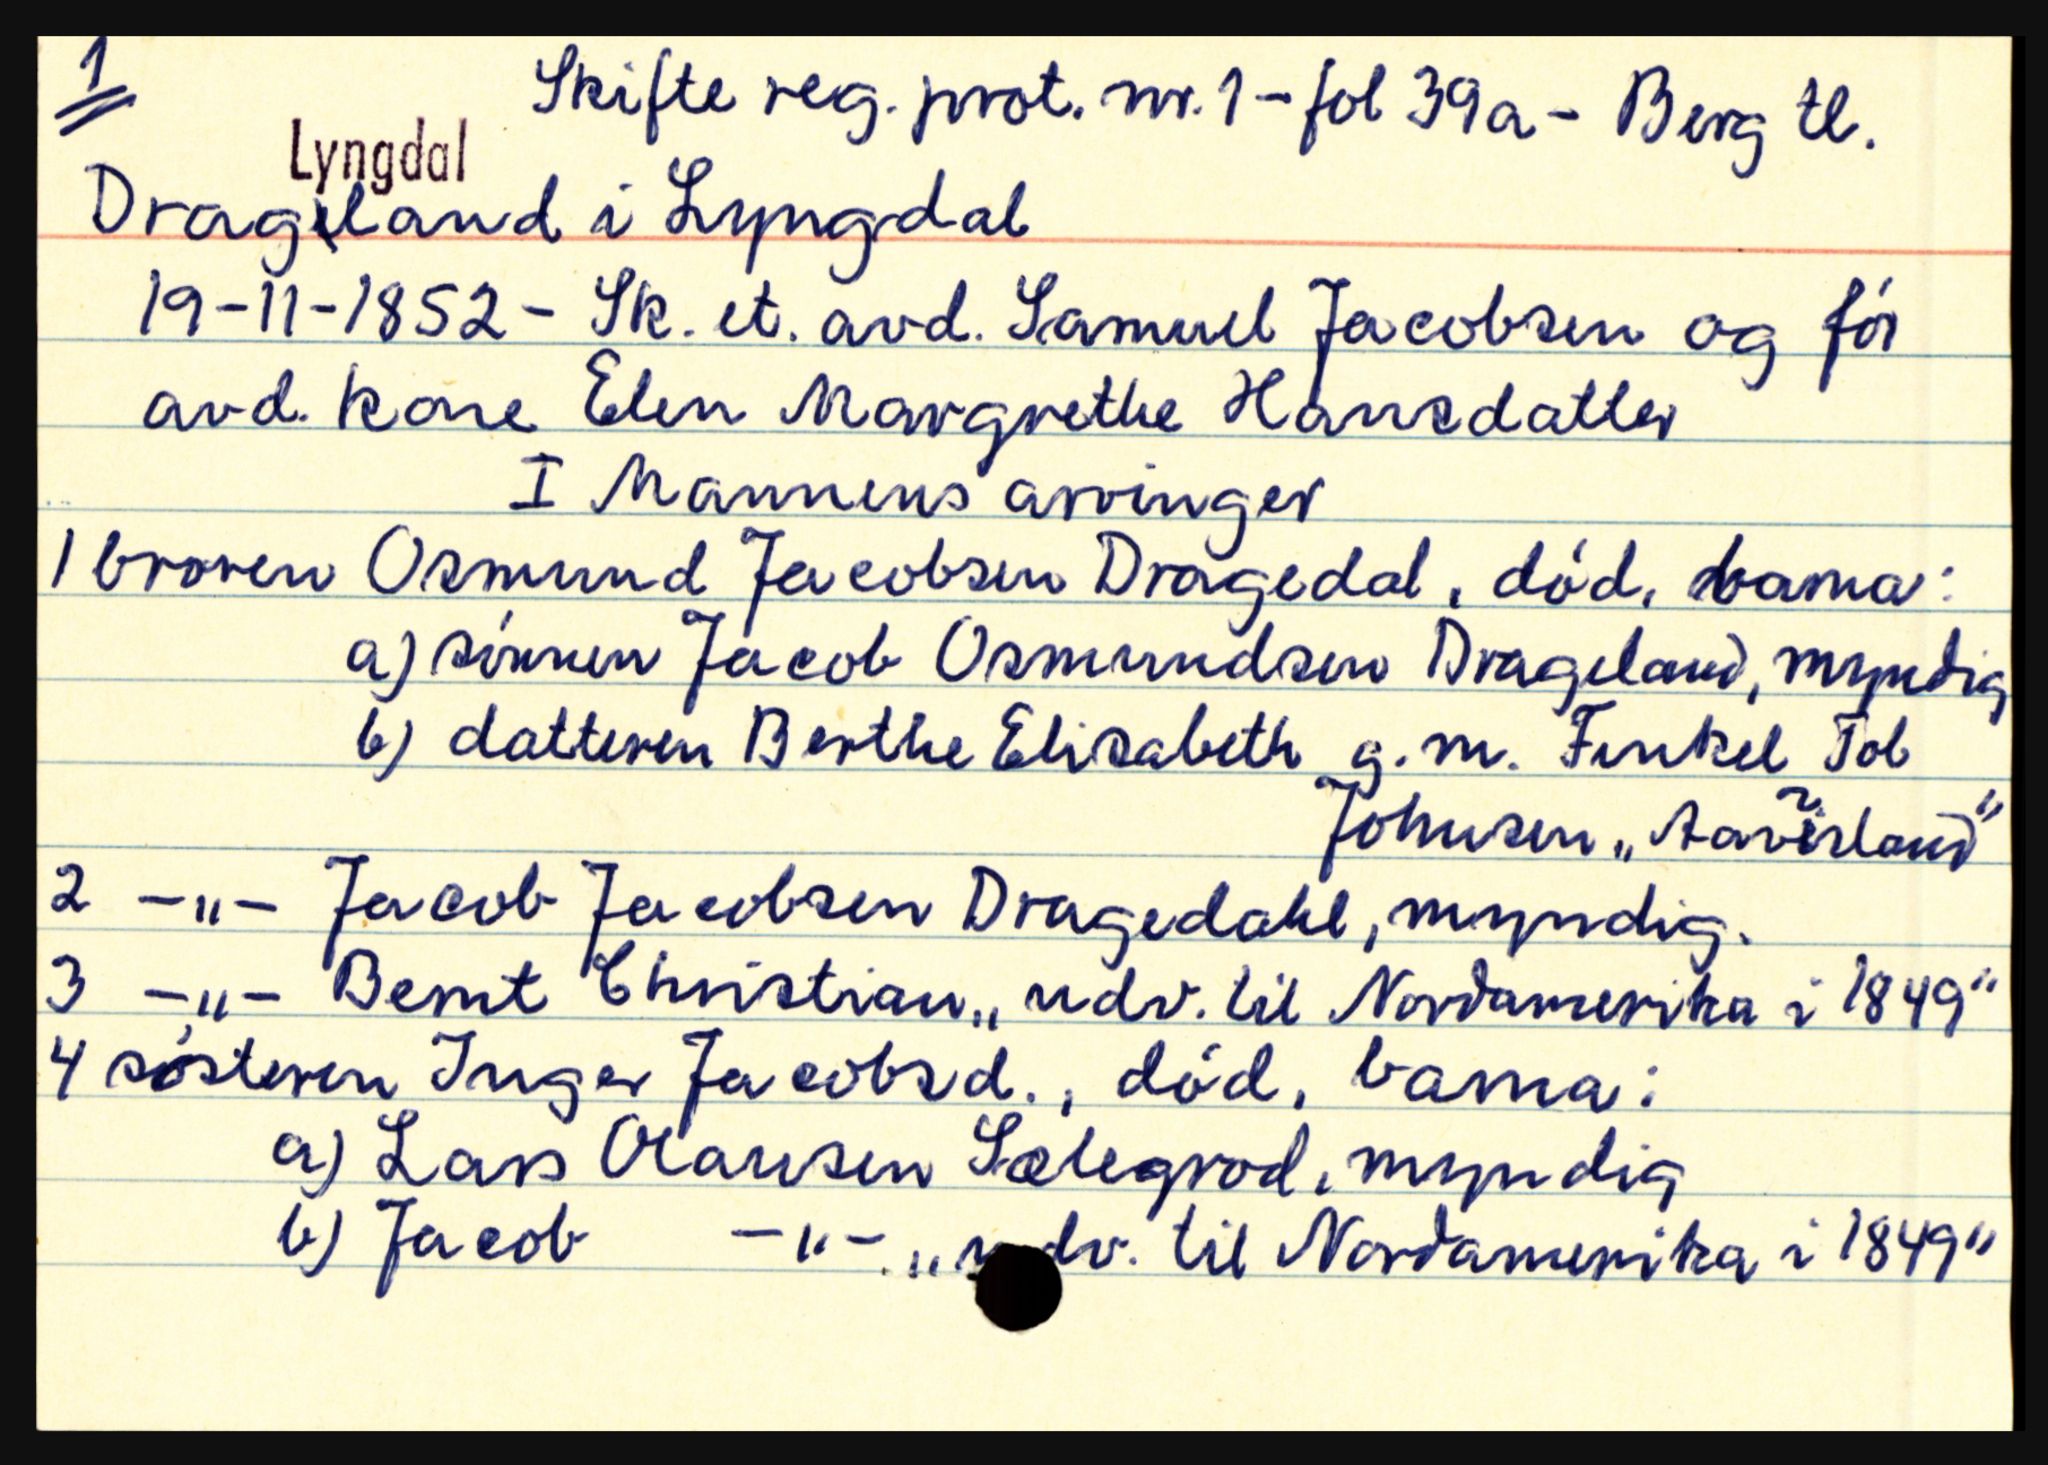 1
Skifte reg. prot. nr. 1 - fol 39a - Berg tl.
Lyngdal
Drageland i Lyngdal
19-11-1852 - Sk. et. avd. Samuel Jacobsen og før
avd. kone Elen Margrethe Hansdatter
I Mannens arvinger
1 broren Osmund Jacobsen Dragedal, død, barna:
a) sønnen Jacob Osmundsen Drageland, myndig
b) datteren Berthe Elisabeth g. m. Tob
Johnsen „
2 -"- Jacob Jacobsen Dragedahl, myndig.
3 -"- Bernt Christian „ udv. til Nordamerika i 1849"
4 søsteren Inger Jacobsd., død, barna:
a) Lars Olausen Sælegrod, myndig
b) Jacob -"- „ udv. til Nordamerika i 1849"